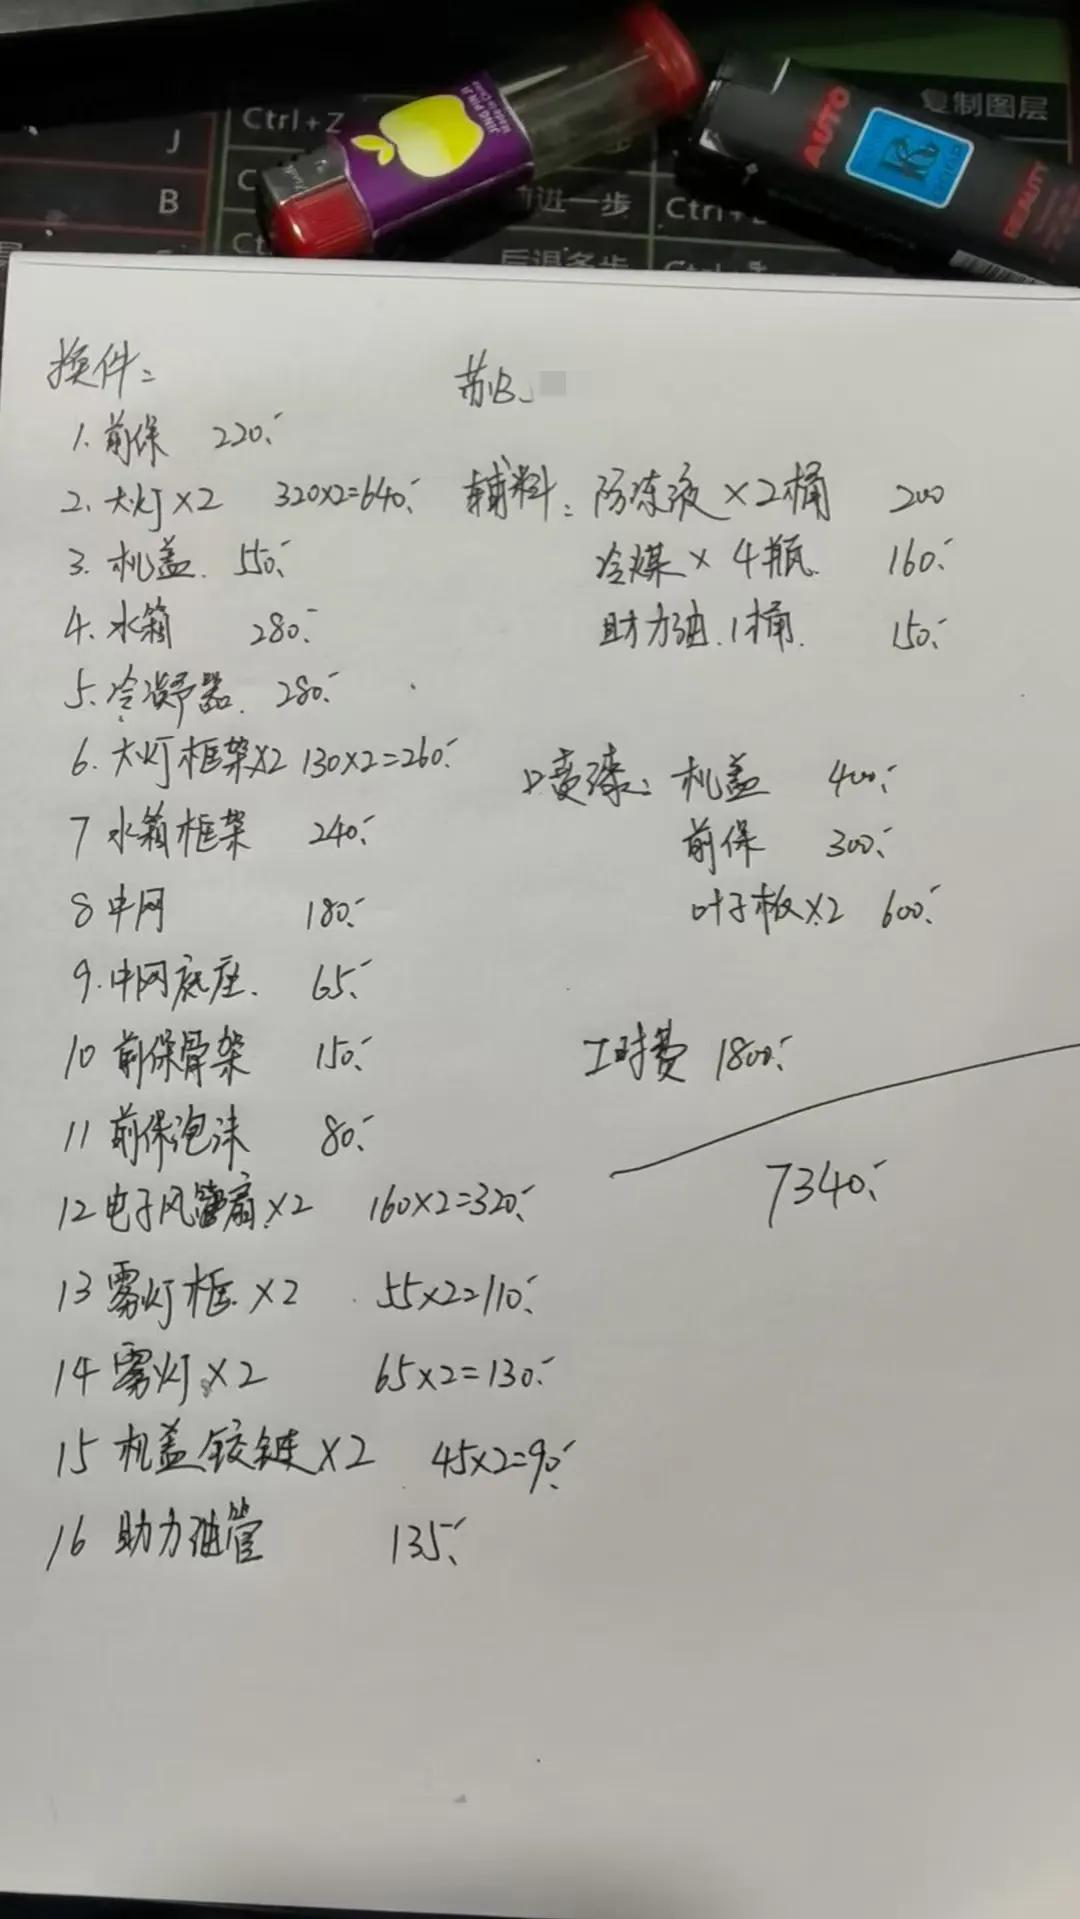 J
Ctrl+Z
复制图层
B
前进一步
Ctrl+
后退多步
JING PIN JI
Made in China
AUTO
换件：
苏B
1. 前保 220.-
2. 大灯×2 320×2=640.-
3. 机盖 550.-
4. 水箱 280.-
5. 冷凝器 280.-
6. 大灯框架×2 130×2=260.-
7 水箱框架 240.-
8 中网 180.-
9. 中网底座 65.-
10 前保骨架 150.-
11 前保泡沫 80.-
12 电子风扇×2 160×2=320.-
13 雾灯框×2 55×2=110.-
14 雾灯×2 65×2=130.-
15 机盖铰链×2 45×2=90.-
16 助力油管 135.-
辅料：防冻液×2桶 200
冷媒×4瓶 160.-
助力油.1桶 150.-
喷漆：机盖 400.-
前保 300.-
叶子板×2 600.-
工时费 1800.-
7340.-